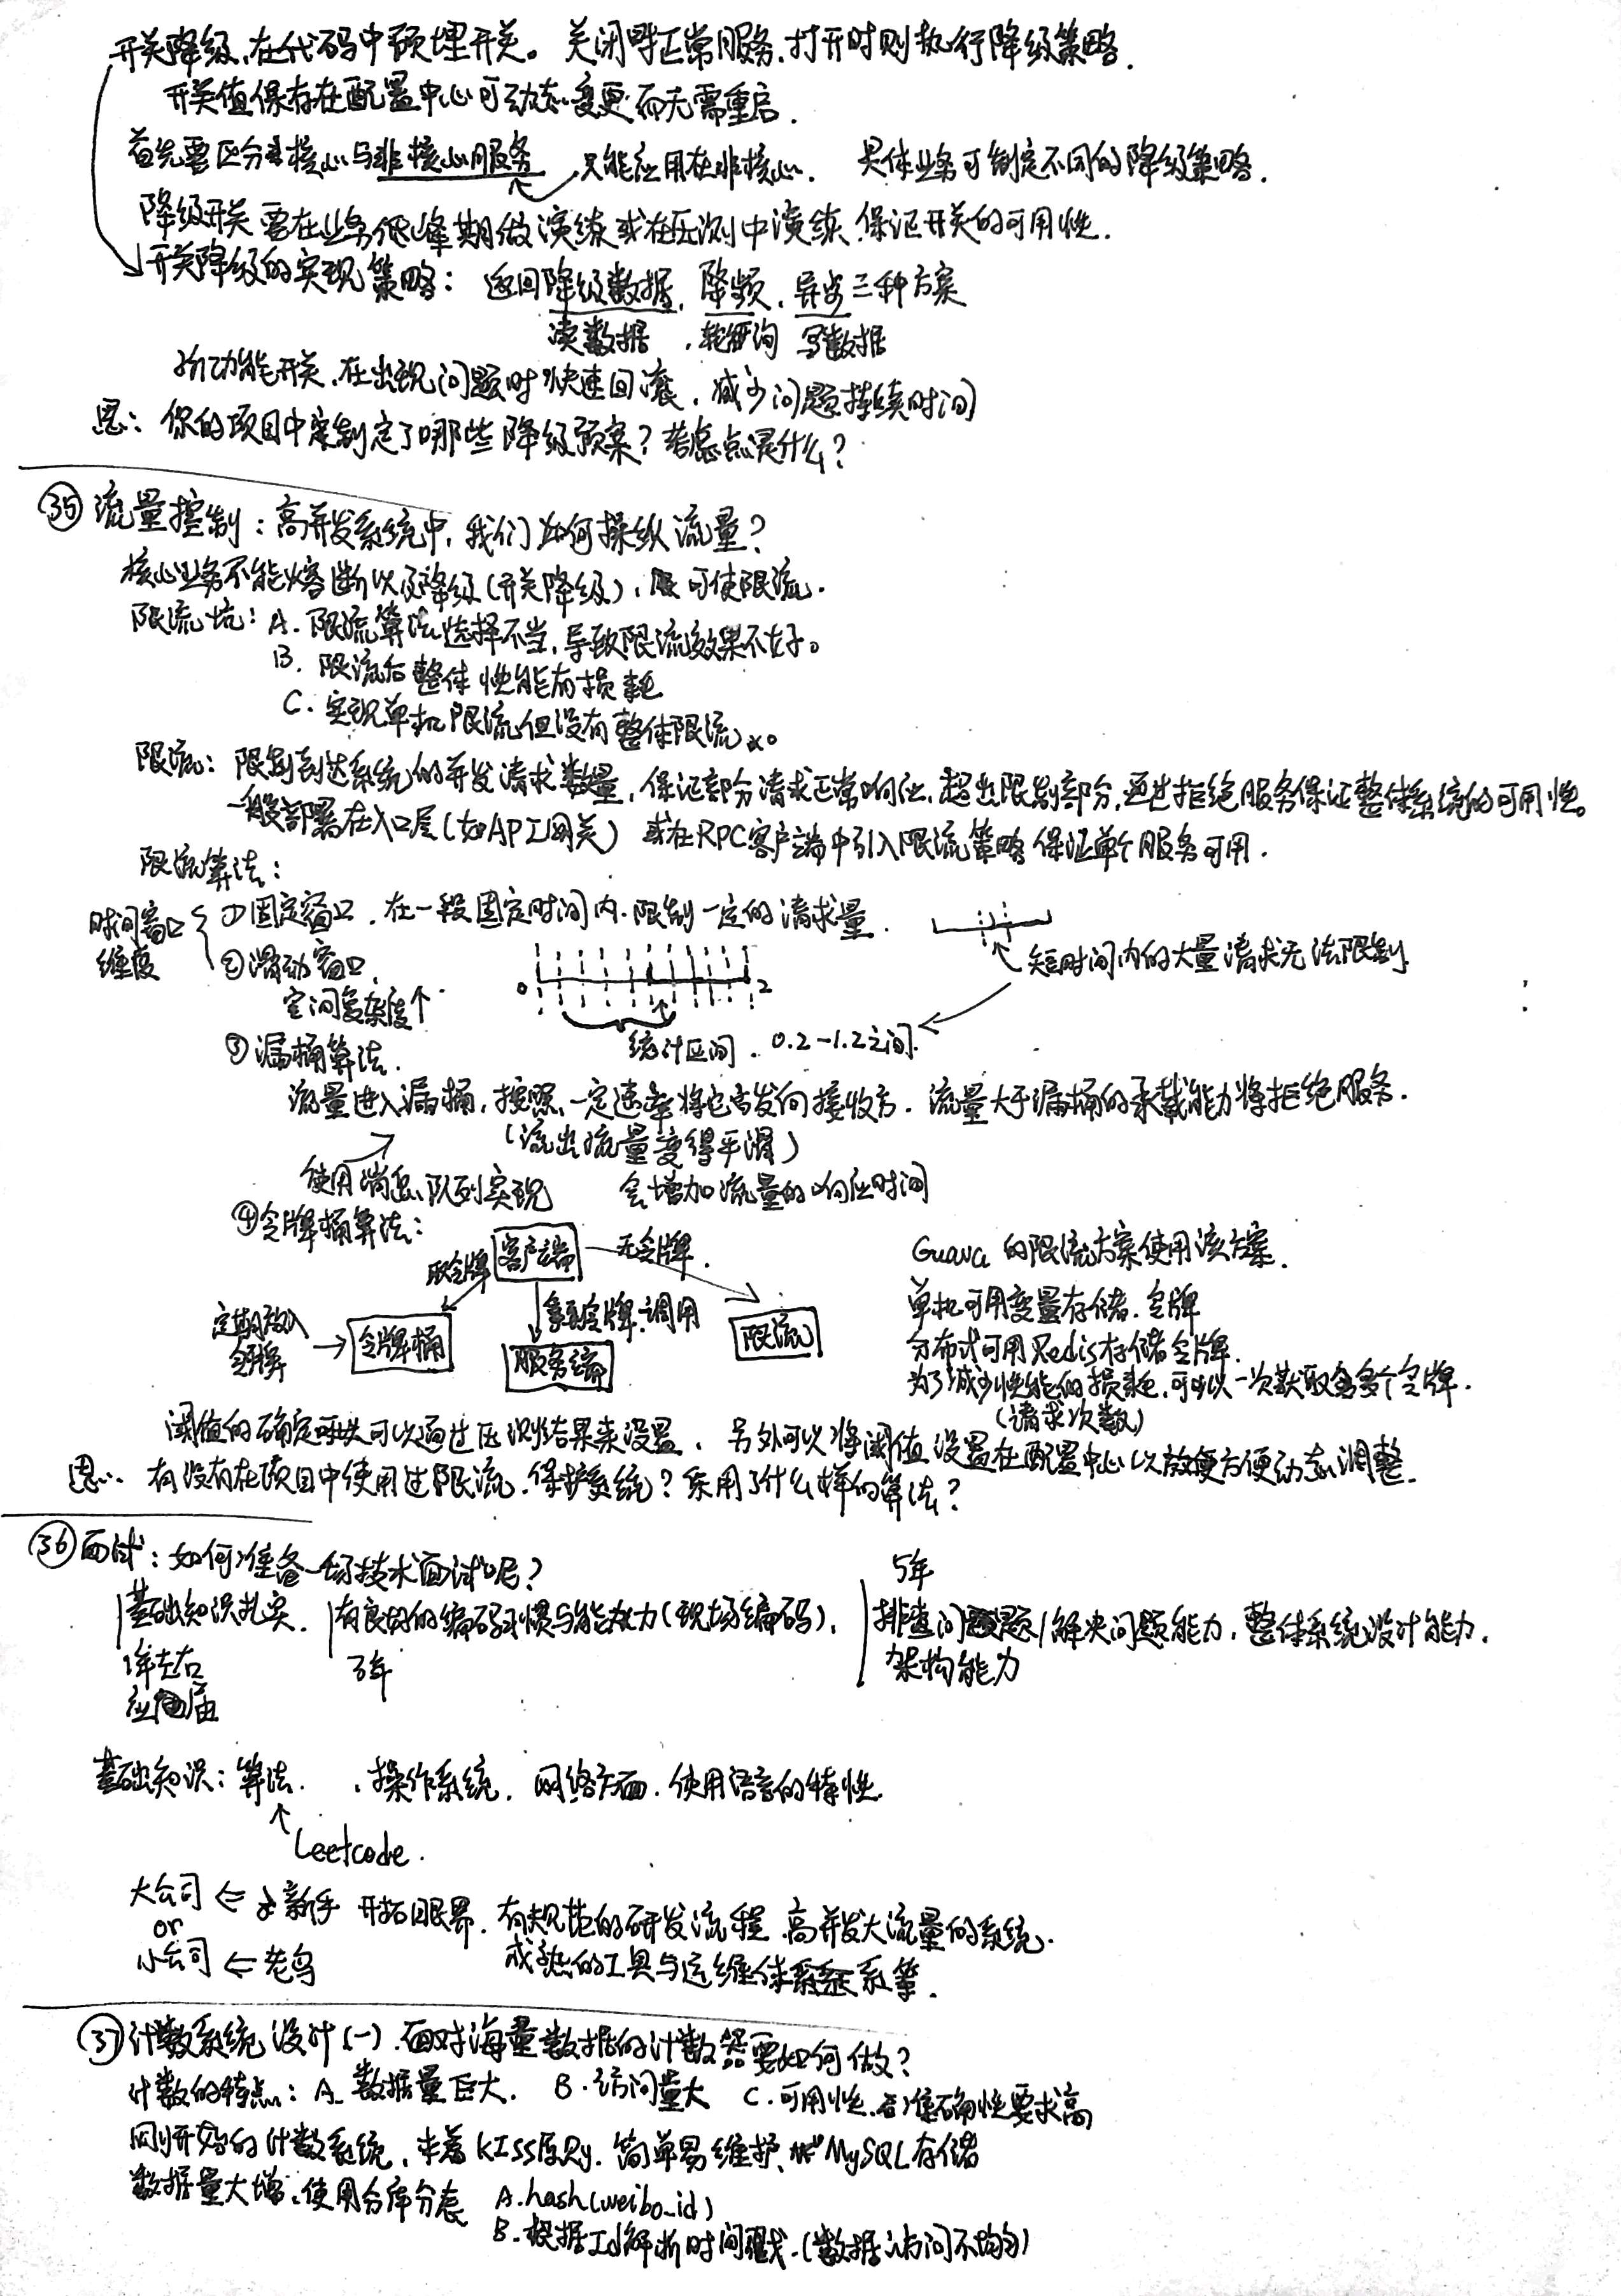 开关降级,在代码中预埋开关。关闭时正常服务,打开时则执行降级策略.
开关值保存在配置中心可动态变更而无需重启.
首先要区分核心与非核心服务 只能应用在非核心. 具体业务可制定不同的降级策略.
降级开关要在业务低峰期做演练或在压测中演练,保证开关的可用性.
开关降级的实现策略: 返回降级数据、降频、异步三种方案
读数据 .轮询 写数据
功能开关,在出现问题时快速回滚,减少问题持续时间
思: 你的项目中制定了哪些降级预案?考虑点是什么?
㉟流量控制:高并发系统中,我们如何操纵流量?
核心业务不能熔断以及降级(开关降级),可使限流.
限流坑: A. 限流算法选择不当,导致限流效果不好。
B. 限流后整体性能有损耗
C. 实现单机限流但没有整体限流。
限流: 限制到达系统的并发请求数量,保证部分请求正常响应,超出限制部分,通过拒绝服务保证整体系统的可用性。
一般部署在入口层(如API网关) 或在RPC客户端中引入限流策略保证单个服务可用.
限流算法:
时间窗口维度
①固定窗口,在一段固定时间内.限制一定的请求量.
短时间内的大量请求无法限制
②滑动窗口.
空间复杂度↑
0 2
统计区间. 0.2-1.2之间.
③漏桶算法.
流量进入漏桶,按照一定速率将它发向接收方. 流量大于漏桶的承载能力将拒绝服务.
(流出流量变得平滑)
使用消息队列实现 会增加流量的响应时间
④令牌桶算法:
取令牌 客户端 无令牌.
定期放入令牌 → 令牌桶
拿到令牌.调用
服务端
限流
Guava 的限流方案使用该方案.
单机可用变量存储.令牌
分布式可用Redis存储令牌.
为了减少性能的损耗,可以一次获取多个令牌.
(请求次数)
阈值的确定可以通过压测结果来设置. 另外可以将阈值设置在配置中心以方便动态调整.
思: 有没有在项目中使用过限流.保护系统?采用了什么样的算法?
㊱面试:如何准备一场技术面试呢?
5年
基础知识扎实. 有良好的编码习惯与能力(现场编码), 排查问题/解决问题能力,整体系统设计能力.
1年左右 3年 架构能力
应届
基础知识: 算法. .操作系统. 网络方面.使用语言的特性.
↑
Leetcode.
大公司 ⇐ 新手 开拓眼界. 有规范的研发流程.高并发大流量的系统.
or
小公司 ⇐ 老鸟 成熟的工具与运维体系等.
㊲计数系统设计(一).面对海量数据的计数器要如何做?
计数的特点: A. 数据量巨大. B. 访问量大 C. 可用性.准确性要求高
刚开始的计数系统,本着KISS原则.简单易维护. MySQL存储
数据量大增:使用分库分表 A.hash(weibo_id)
B.根据Id解析时间戳.(数据访问不均匀)